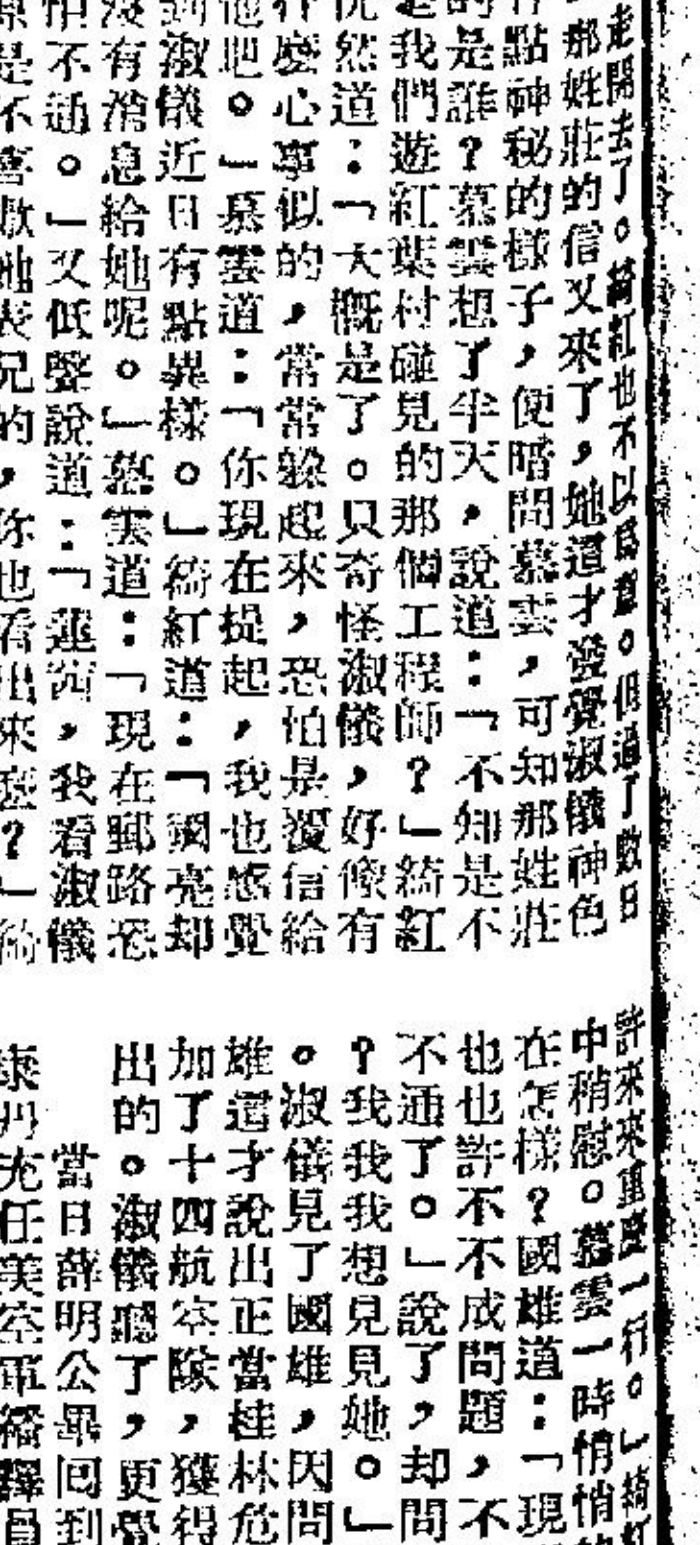 走開去了。綺紅也不以爲意。但過了數日
那姓莊的信又來了,她這才發覺淑儀神色
點神秘的樣子,便暗問慕雲,可知那姓莊
的是誰?慕雲想了半天,說道:「不知是不
是我們遊紅葉村碰見的那個工程師?」綺紅
恍然道:「大概是了。只奇怪淑儀,好像有
什麼心事似的,常常躲起來,恐怕是覆信給
他吧。」慕雲道:「你現在提起,我也感覺
到淑儀近日有點異樣。」綺紅道:「國亮却
沒有消息給她呢。」慕雲道:「現在郵路恐
怕不通。」又低聲說道:「蓮茵,我看淑儀
是不喜歡她表兄的,你也看出來麼?」綺
許來來重慶一行。」綺紅
中稍慰。慕雲一時悄悄的
在怎樣?國雄道:「現
也也許不不成問題,不
不通了。」說了,却問
?我我我想見見她。」
。淑儀見了國雄,因問
雄這才說出正當桂林危
加了十四航空隊,獲得
出的。淑儀聽了,更覺
當日薛明公畢回到
康乃充任美空軍繙譯員